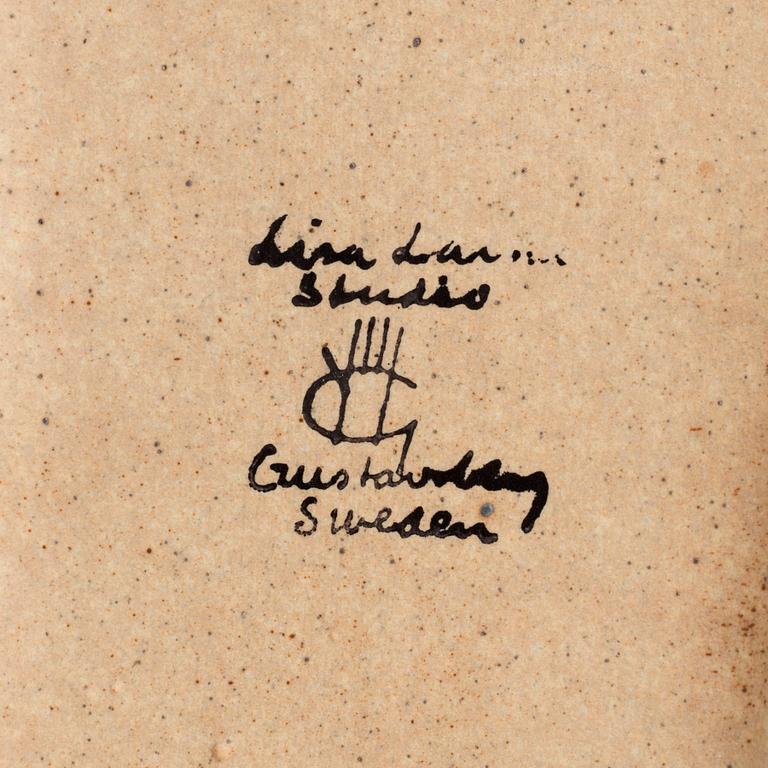 Lisa Lar...
Studio
Gustavsberg
Sweden